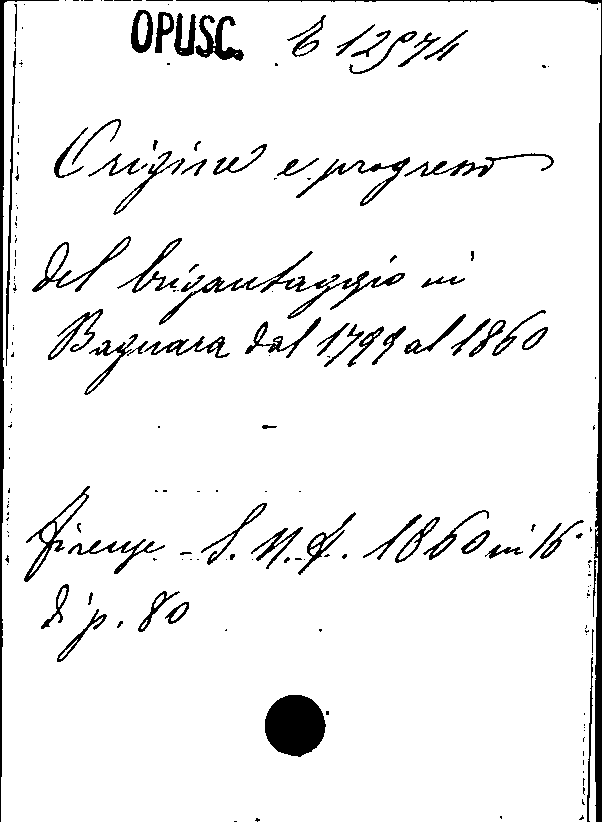 OPUSC. E 12574
Origine e progresso
del brigantaggio in
Bagnara dal 1799 al 1860
Firenze - S. N. T. 1860 in 16°
di p. 80